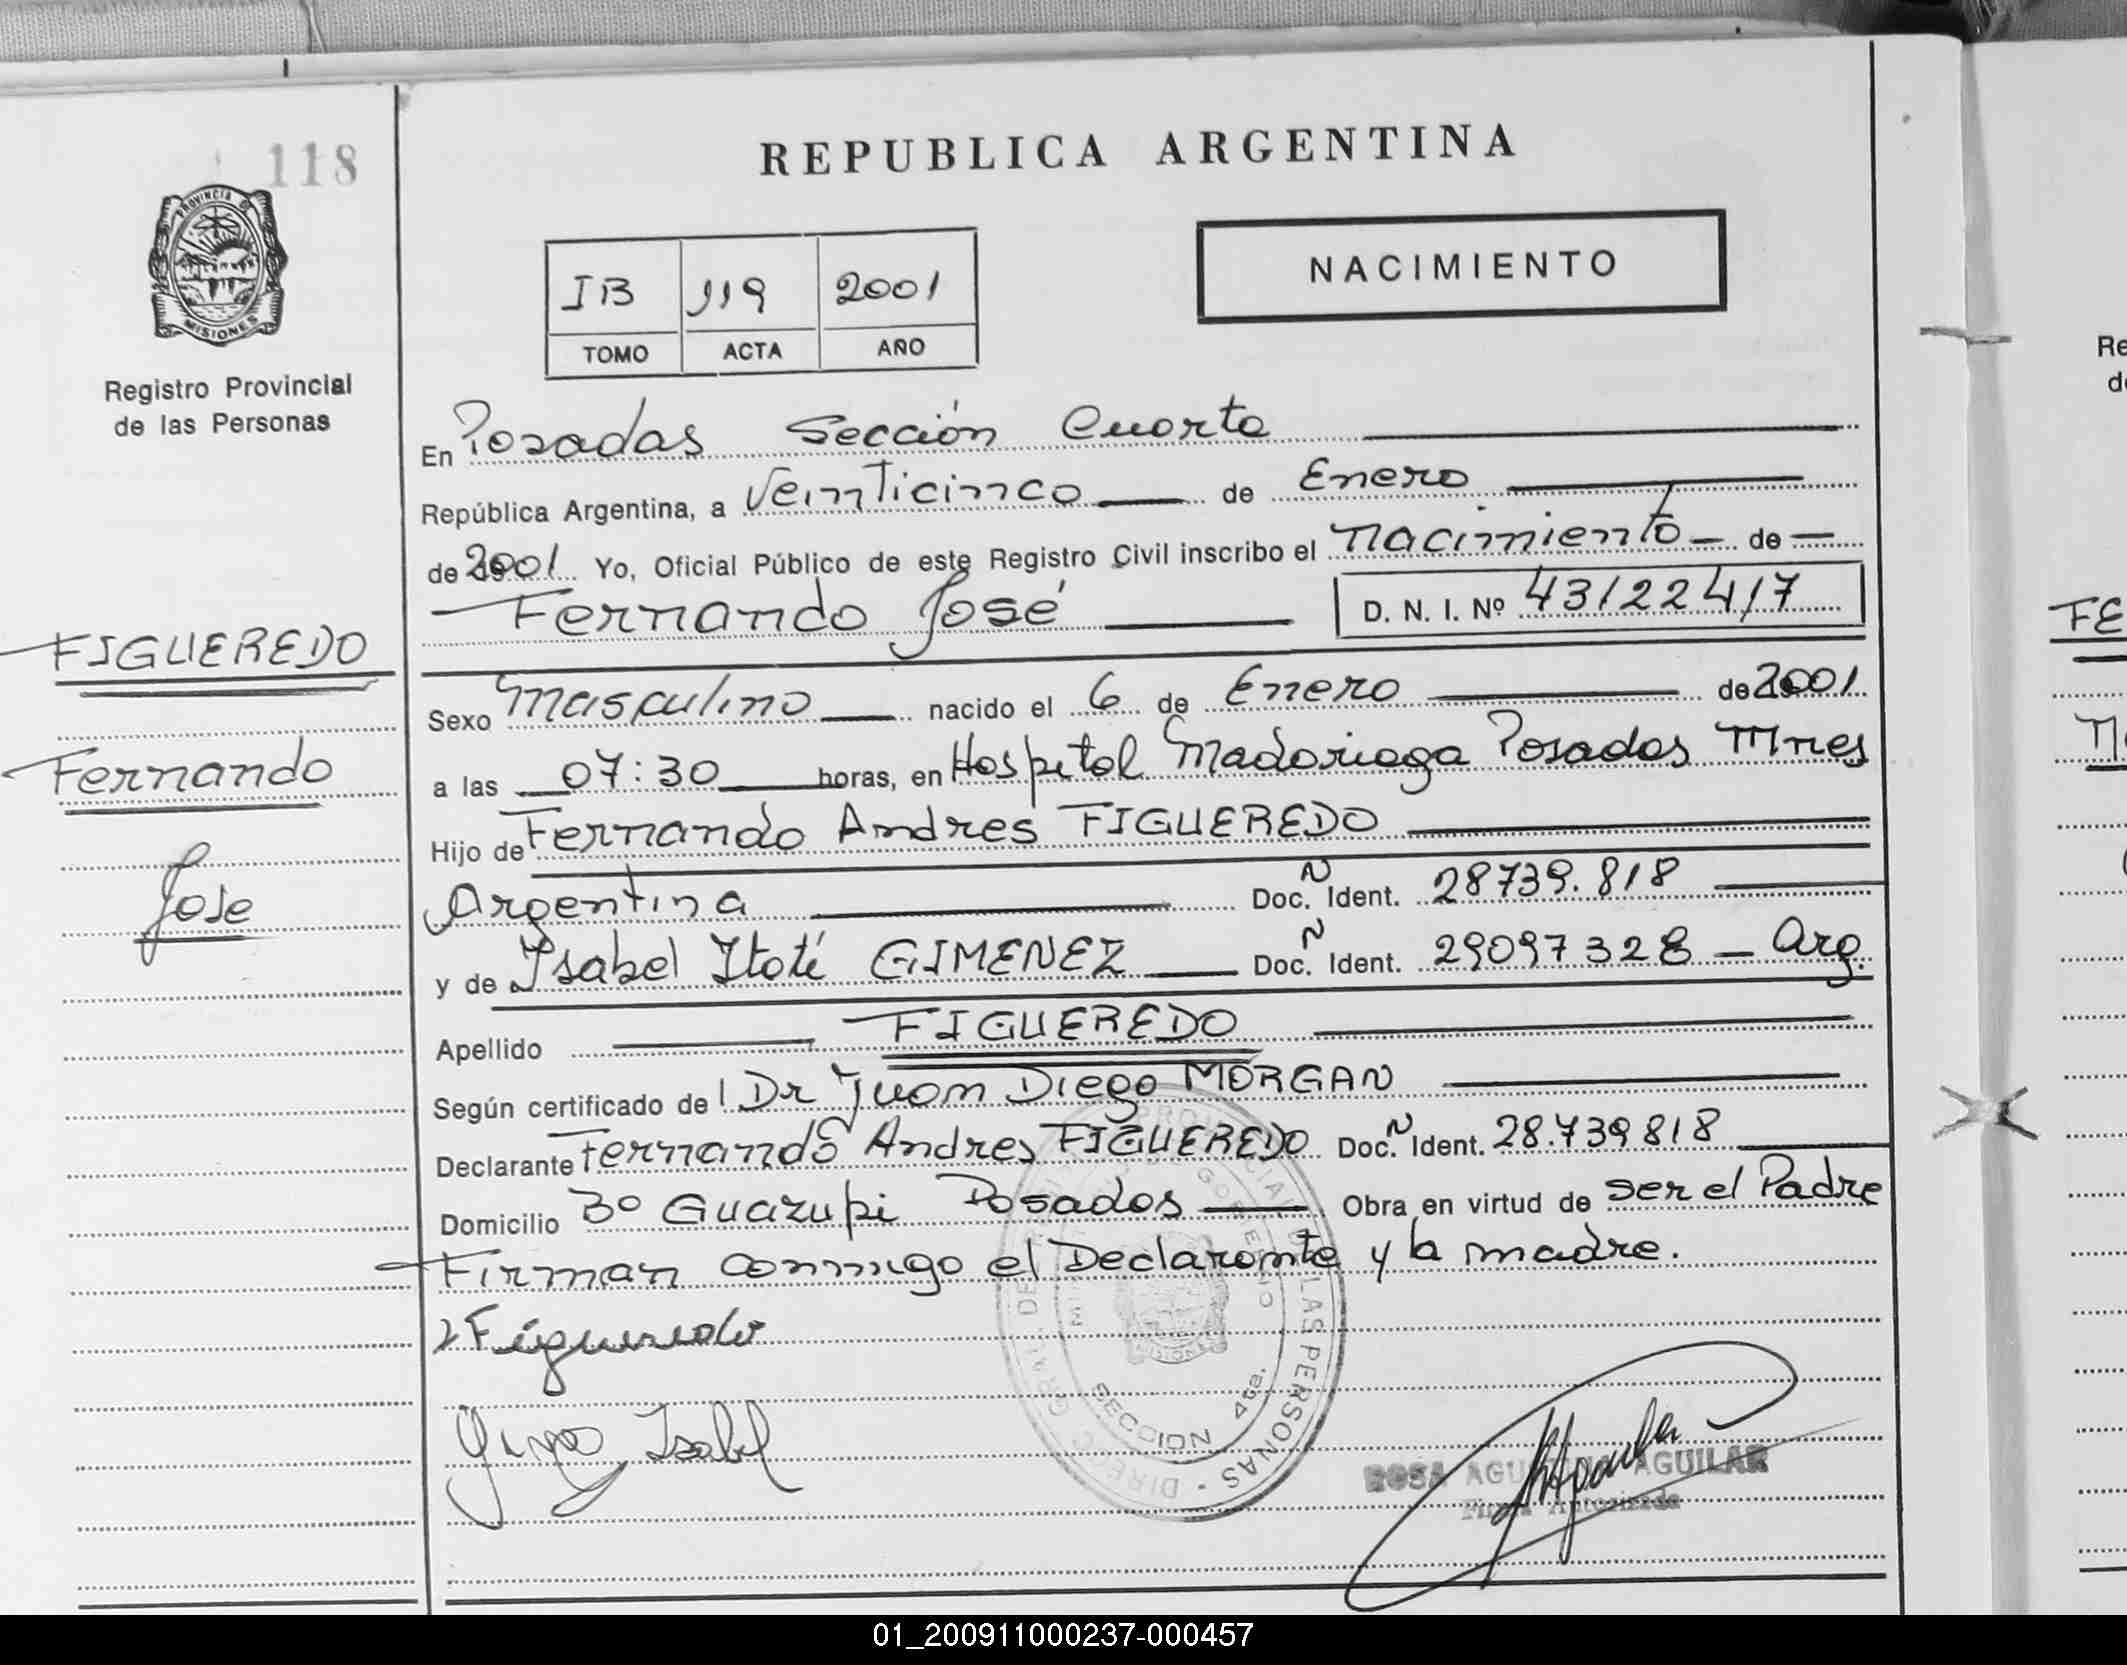 118
PROVINCIA DE
MISIONES
Registro Provincial
de las Personas
FIGUEREDO
Fernando
Jose
REPUBLICA ARGENTINA
NACIMIENTO
IB 119 2001
TOMO ACTA AÑO
En Posadas Sección Cuarta
República Argentina, a Veinticinco de Enero
de 2001 Yo, Oficial Público de este Registro Civil inscribo el nacimiento de
Fernando José D. N. I. Nº 43122417
Sexo Masculino nacido el 6 de Enero de 2001
a las 07:30 horas, en Hospital Madariaga Posadas Mnes
Hijo de Fernando Andres FIGUEREDO
Argentina Doc. N Ident. 28739.818
y de Isabel Itatí GIMENEZ Doc. N Ident. 29097328 - Arg.
Apellido FIGUEREDO
Según certificado de Dr Juan Diego MORGAN
Declarante Fernando Andres FIGUEREDO Doc. N Ident. 28.739818
Domicilio Bº Guazupi Posadas Obra en virtud de ser el Padre
Firman conmigo el Declarante y la madre.
Figueredo
Isabel
SECCION 4ta.
LAS PERSONAS
MISIONES
ROSA AGUILAR
Firma Autorizada
Re
de
FE
01_200911000237-000457